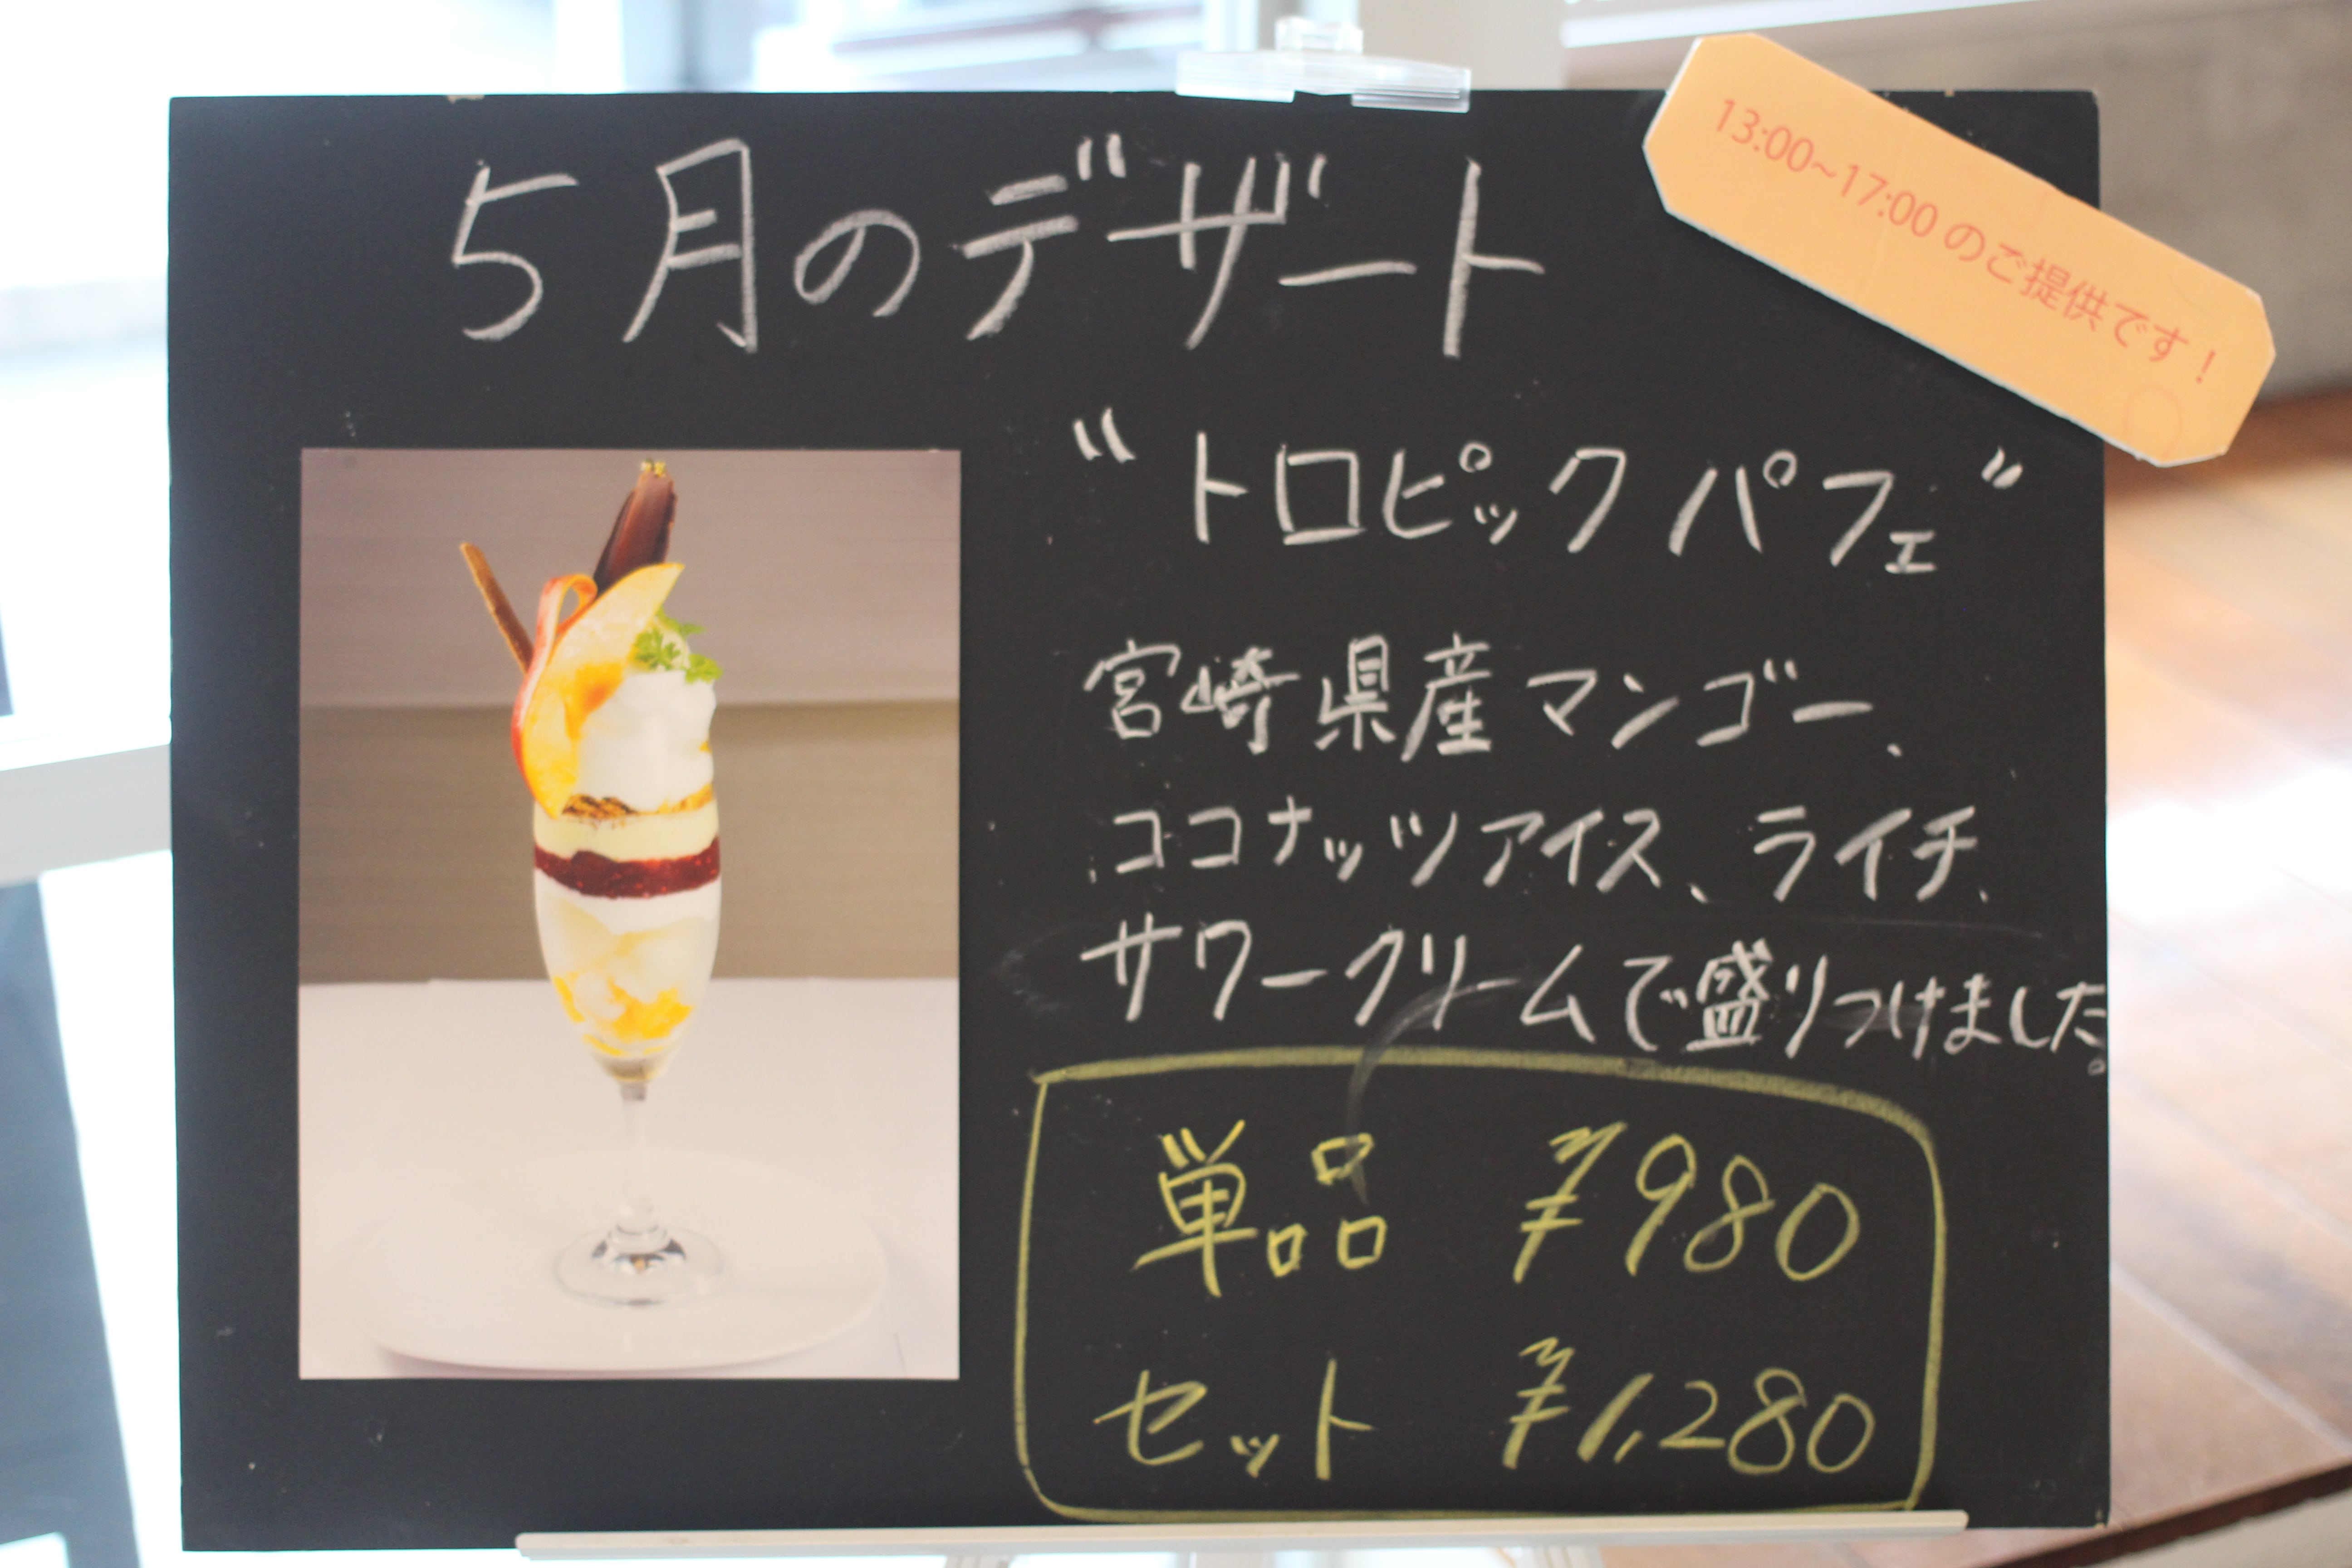 5月のデザート
13:00~17:00のご提供です！
“トロピックパフェ”
宮崎県産マンゴー、
ココナッツアイス、ライチ、
サワークリームで盛りつけました。
単品 ¥980
セット ¥1,280